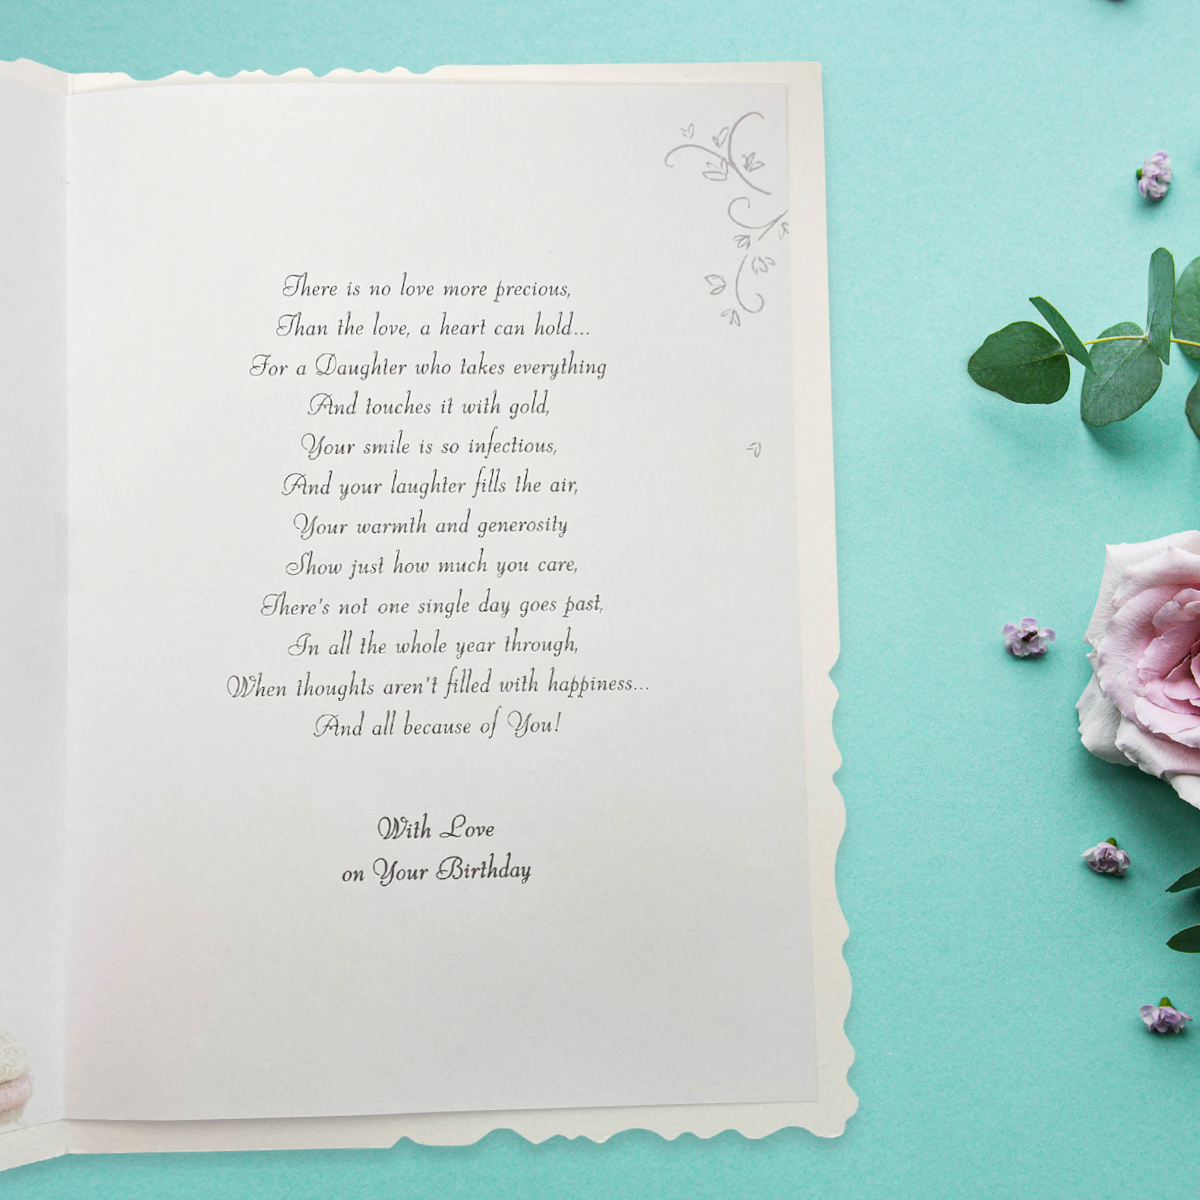 There is no love more precious,
Than the love, a heart can hold...
For a Daughter who takes everything
And touches it with gold,
Your smile is so infectious,
And your laughter fills the air,
Your warmth and generosity
Show just how much you care,
There's not one single day goes past,
In all the whole year through,
When thoughts aren't filled with happiness...
And all because of You!
With Love
on Your Birthday